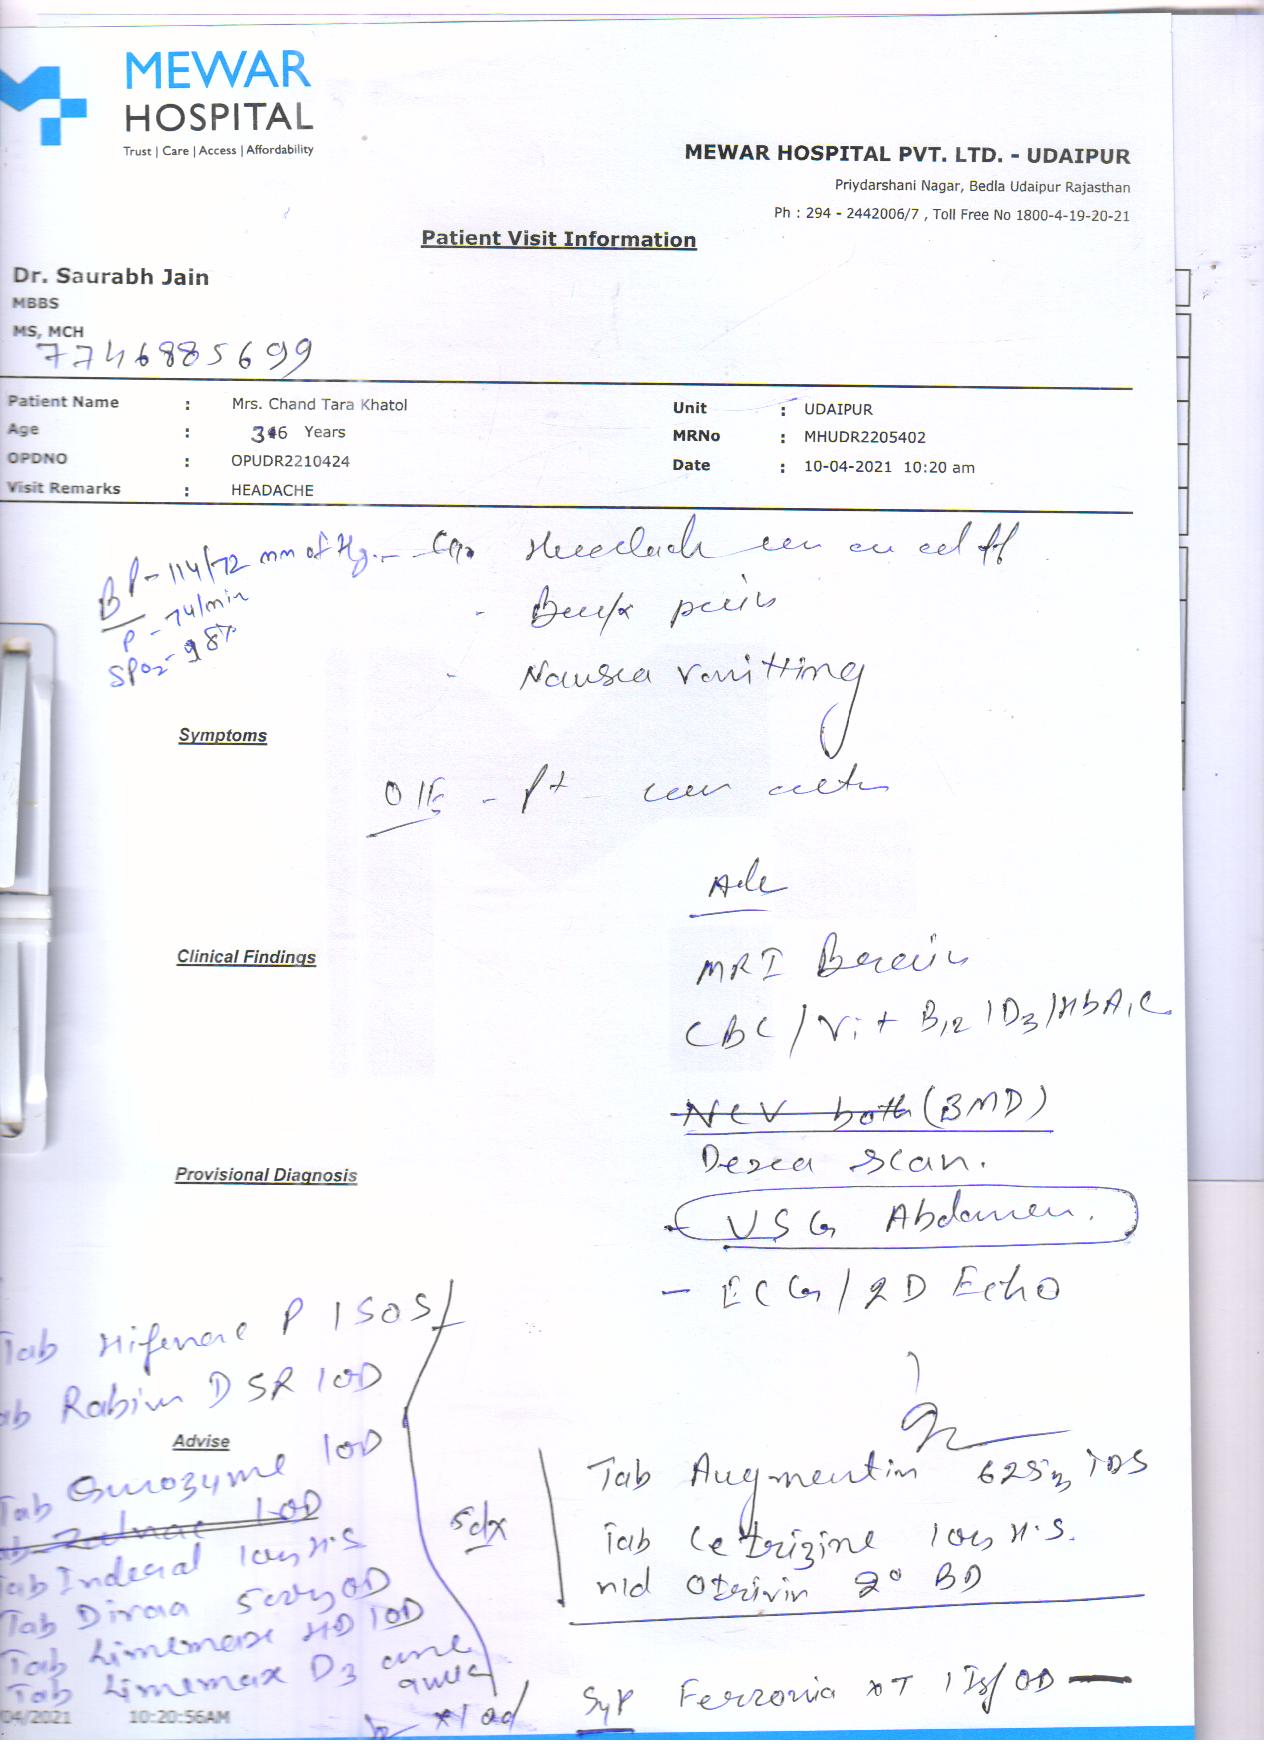 MEWAR
HOSPITAL
Trust | Care | Access | Affordability
MEWAR HOSPITAL PVT. LTD. - UDAIPUR
Priydarshani Nagar, Bedla Udaipur Rajasthan
Ph : 294 - 2442006/7 , Toll Free No 1800-4-19-20-21
Patient Visit Information
Dr. Saurabh Jain
MBBS
MS, MCH
7746885699
Patient Name : Mrs. Chand Tara Khatol
Unit : UDAIPUR
Age : 36 Years
MRNo : MHUDR2205402
OPDNO : OPUDR2210424
Date : 10-04-2021 10:20 am
Visit Remarks : HEADACHE
BP - 114/72 mm of Hg.
P - 74/min
SPO2 - 98%
Headach
- pain
- Nausea vomitting
Symptoms
O/E - Pt
Adv
Clinical Findings
MRI Brain
CBC / Vit B12 / D3 / HbA1C
NCV both (BMD)
Provisional Diagnosis
Dexa scan.
USG Abdomen.
- ECG / 2D Echo
Tab Hifenac P 1 SOS
Tab DSR 1OD
Advise
Tab 1OD
1OD
Tab H.S
Tab OD
Tab Limemax HD 1OD
Tab Limemax D3
5d x
Tab Augmentin 625 TDS
Tab Cetrizine H.S.
Otrivin 2° BD
Syp XT OD
04/2021 10:20:56AM